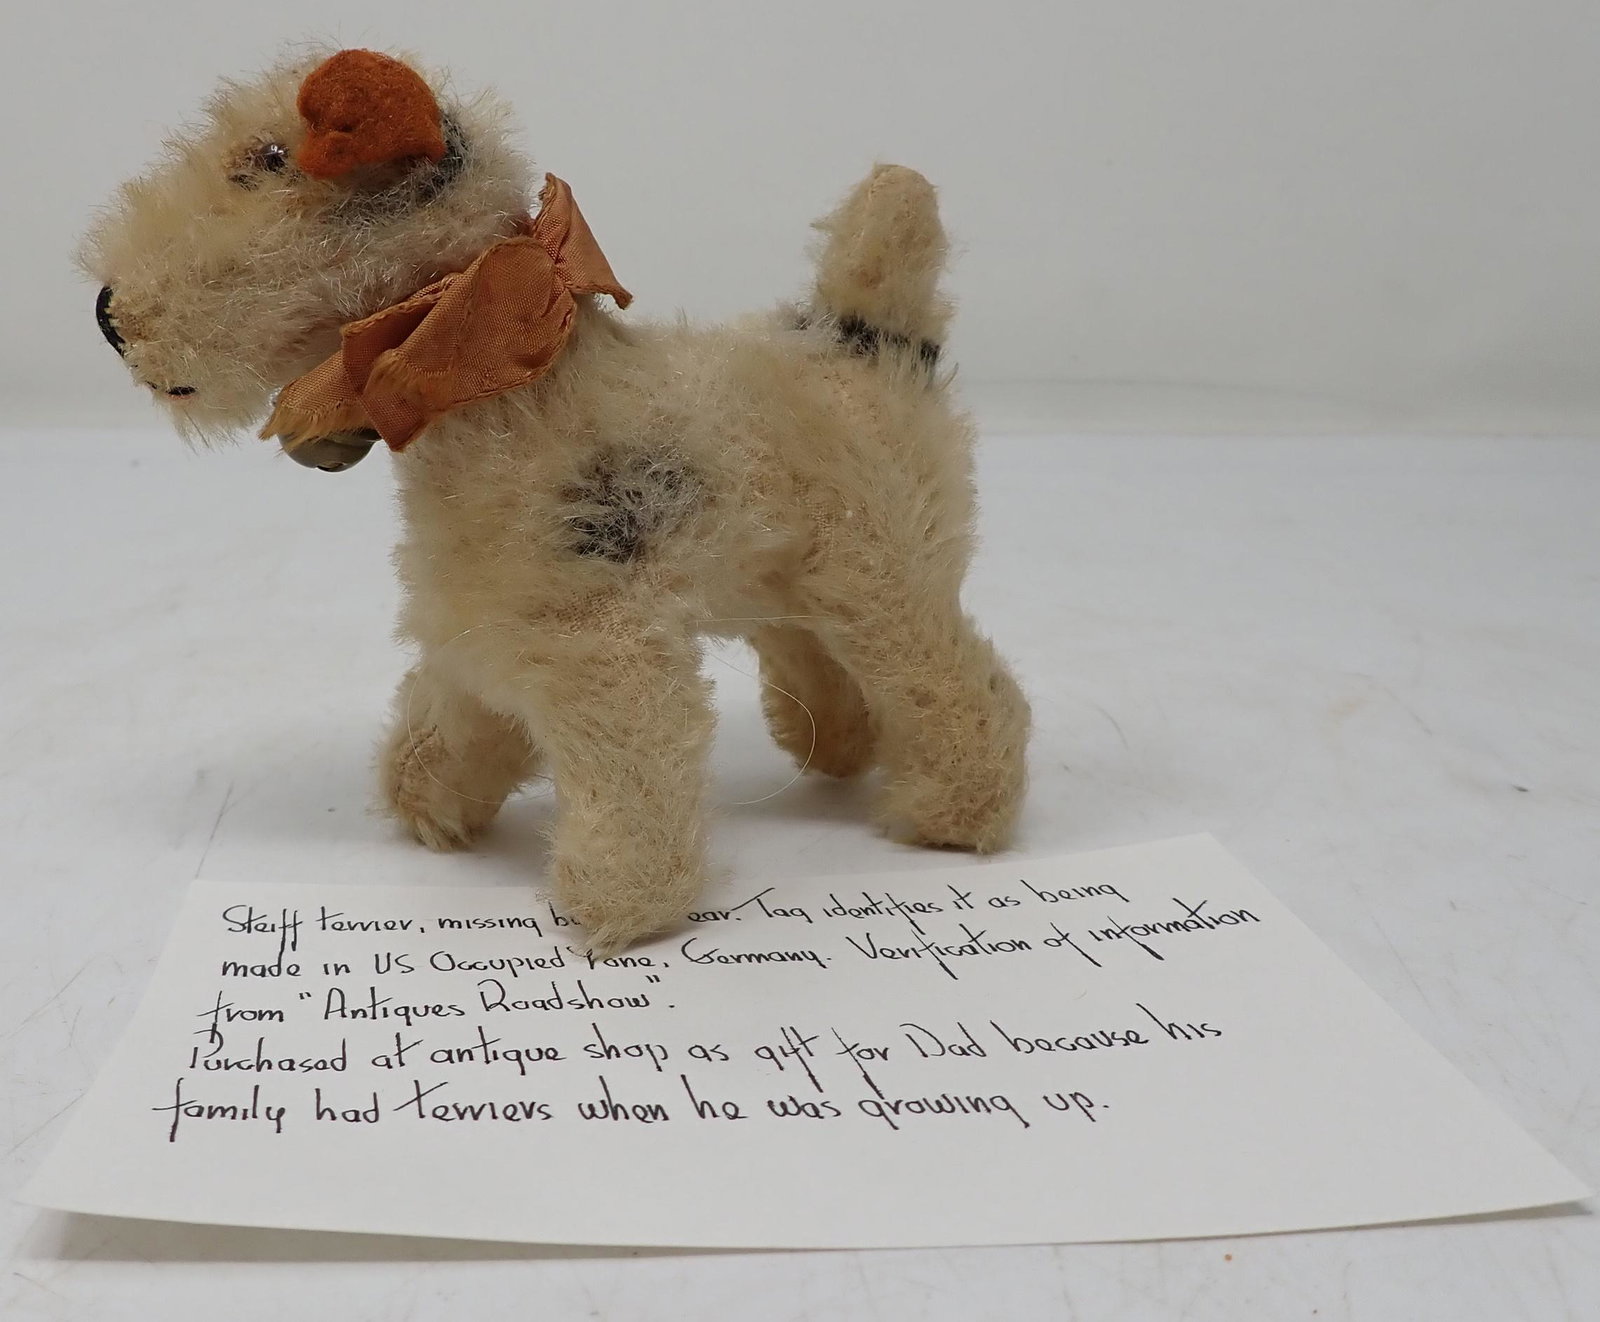 Steiff terrier, missing b ear. Tag identifies it as being
made in US Occupied Zone, Germany. Verification of information
from "Antiques Roadshow".
Purchased at antique shop as gift for Dad because his
family had terriers when he was growing up.